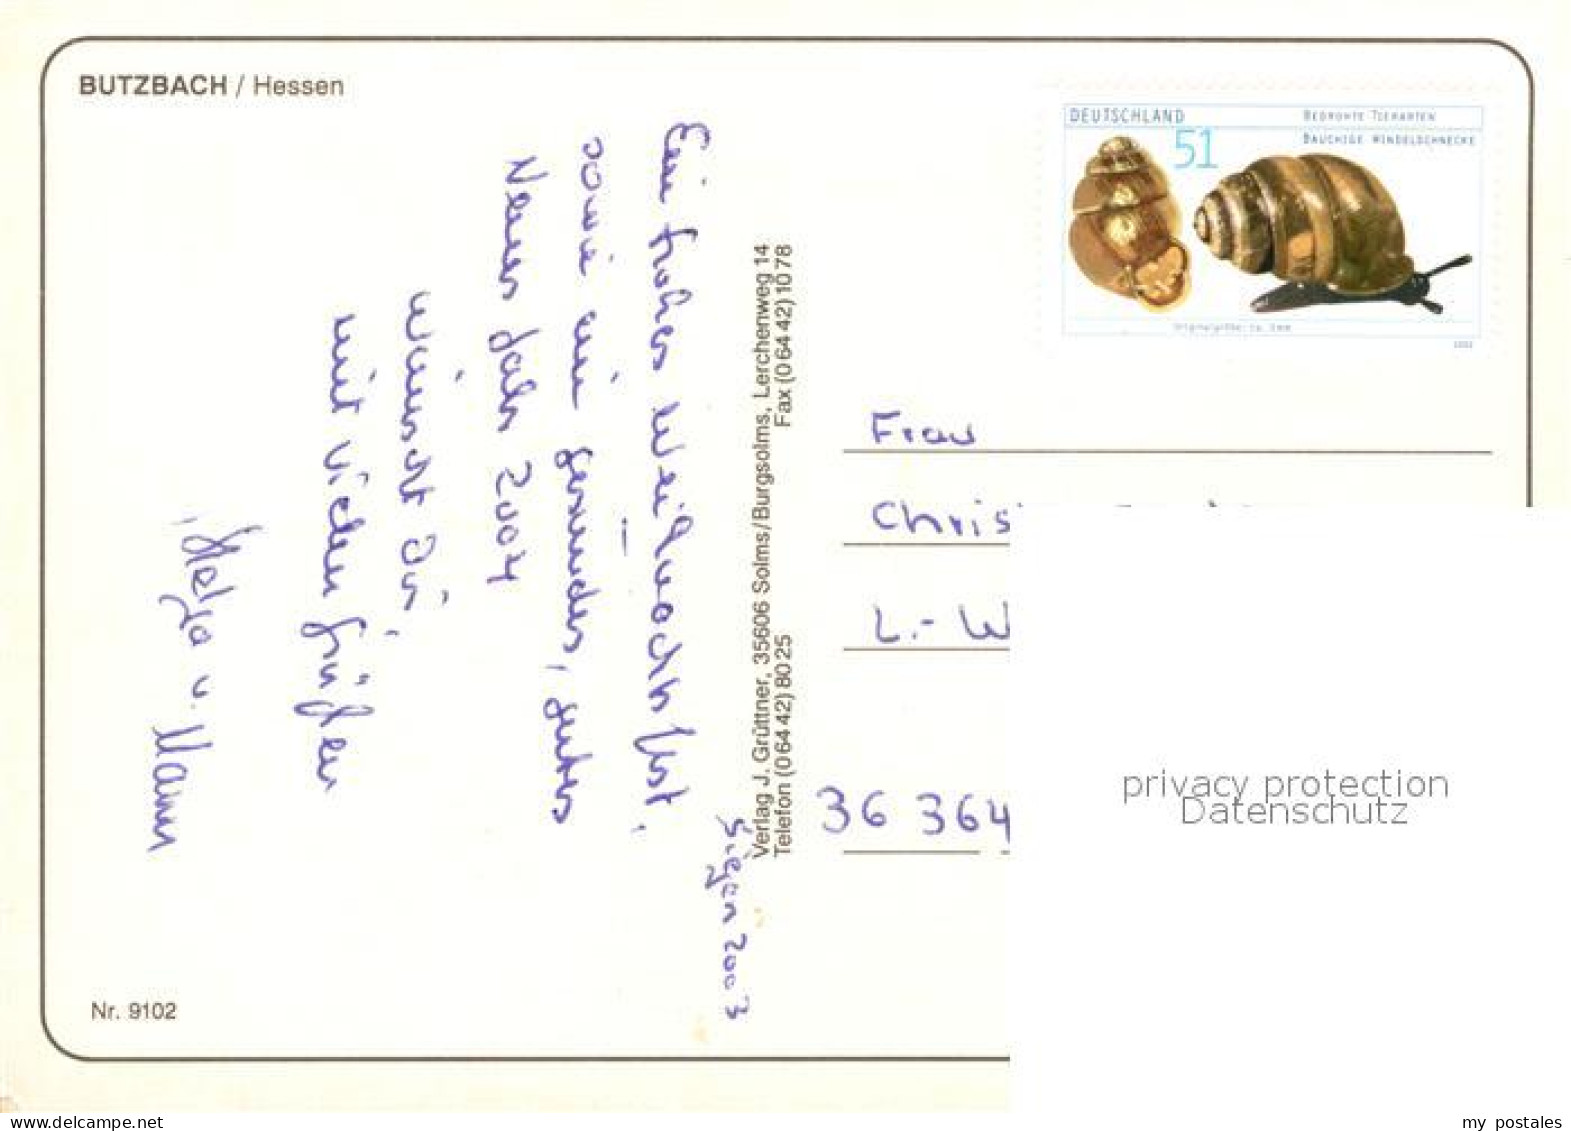 BUTZBACH / Hessen
DEUTSCHLAND
51
BEDROHTE TIERARTEN
BAUCHIGE WINDELSCHNECKE
Originalgröße: ca. 3mm
2002
Siegen 2003
Ein frohes Weihnachtsfest,
sowie ein gesundes, gutes
Neues Jahr 2004
wünscht Dir,
mit vielen Grüßen
Helga u. Mann
Verlag J. Grüttner, 35606 Solms/Burgsolms, Lerchenweg 14
Telefon (0 64 42) 80 25 Fax (0 64 42) 10 78
Frau
Chris
L.- W
36 364
privacy protection
Datenschutz
Nr. 9102
www.delcampe.net
my_postales